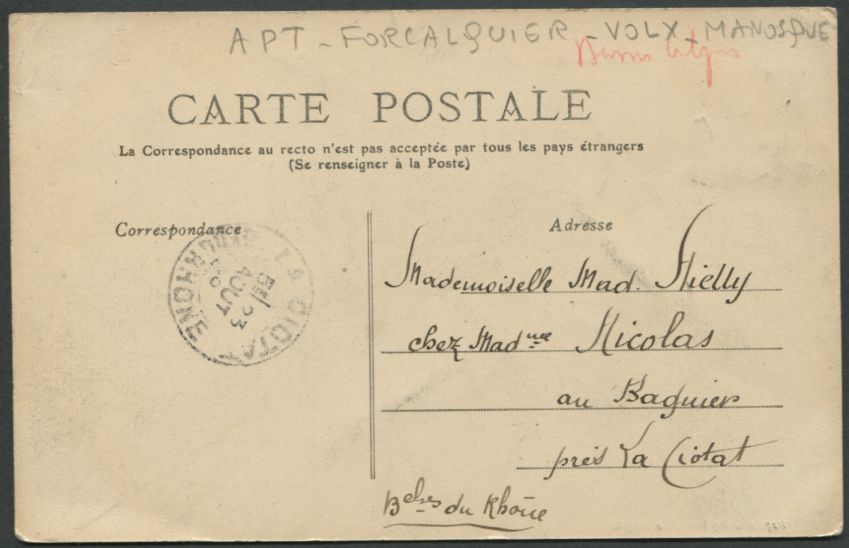 APT - FORCALQUIER - VOLX - MANOSQUE
Basses Alpes
CARTE POSTALE
La Correspondance au recto n'est pas acceptée par tous les pays étrangers
(Se renseigner à la Poste)
Correspondance
Adresse
LA CIOTAT
BCHES DU RHONE
5E
23
AOUT
Mademoiselle Mad. Nielly
chez Madme Nicolas
au Baguier
près La Ciotat
Bches du Rhône